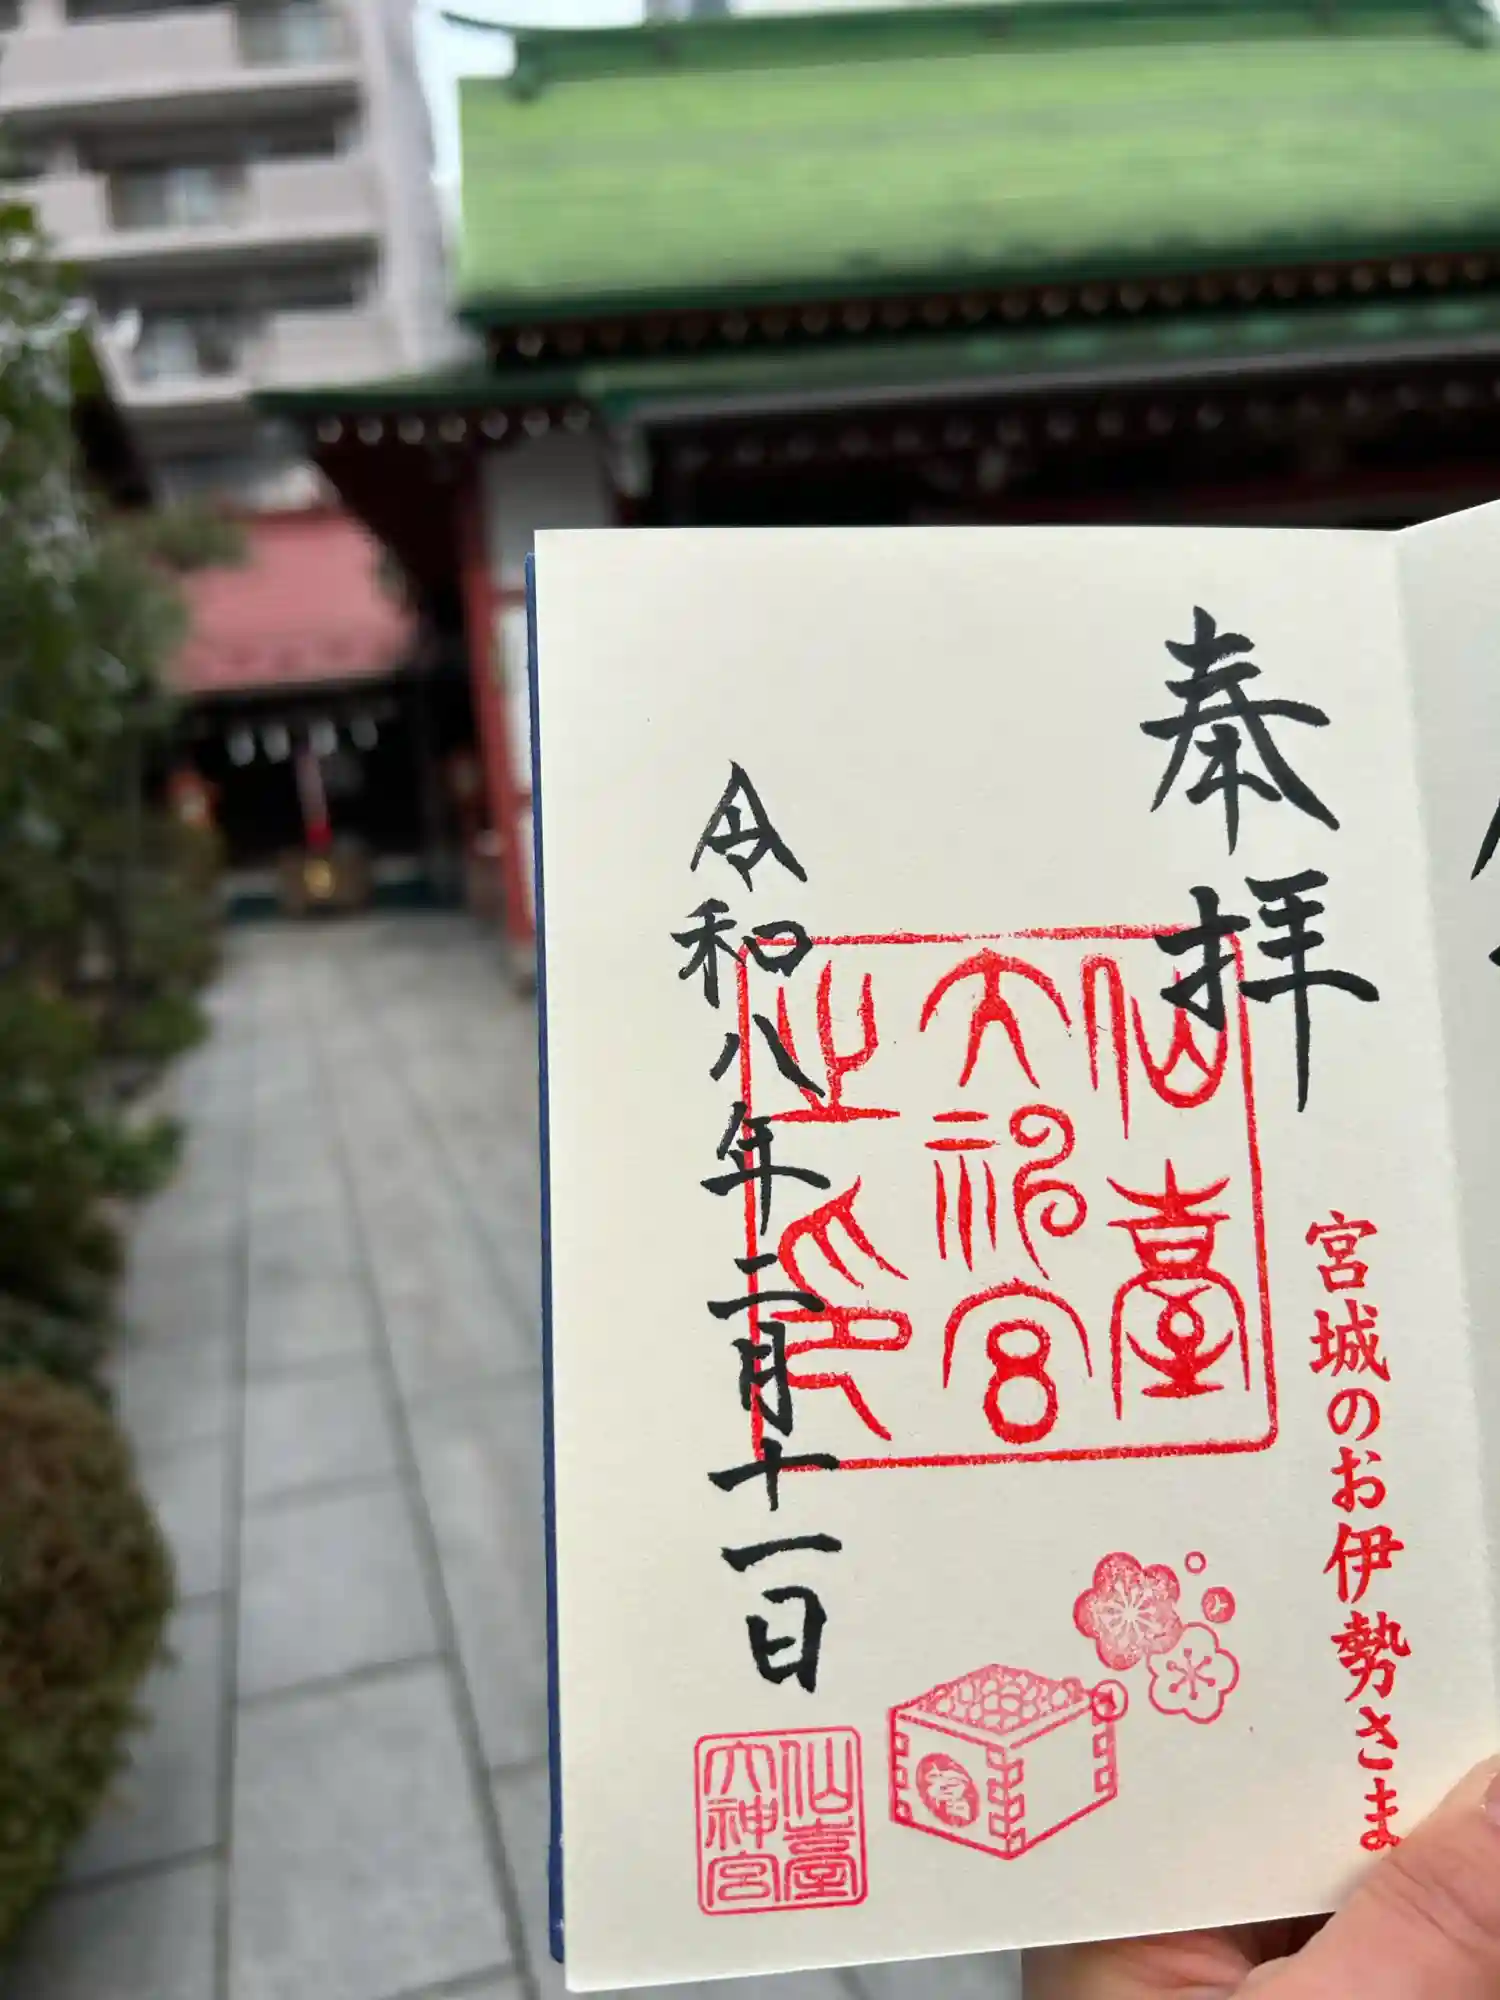 奉拝
宮城のお伊勢さま
仙臺
大神宮
之印
令和八年二月十一日
福
仙臺
大神宮